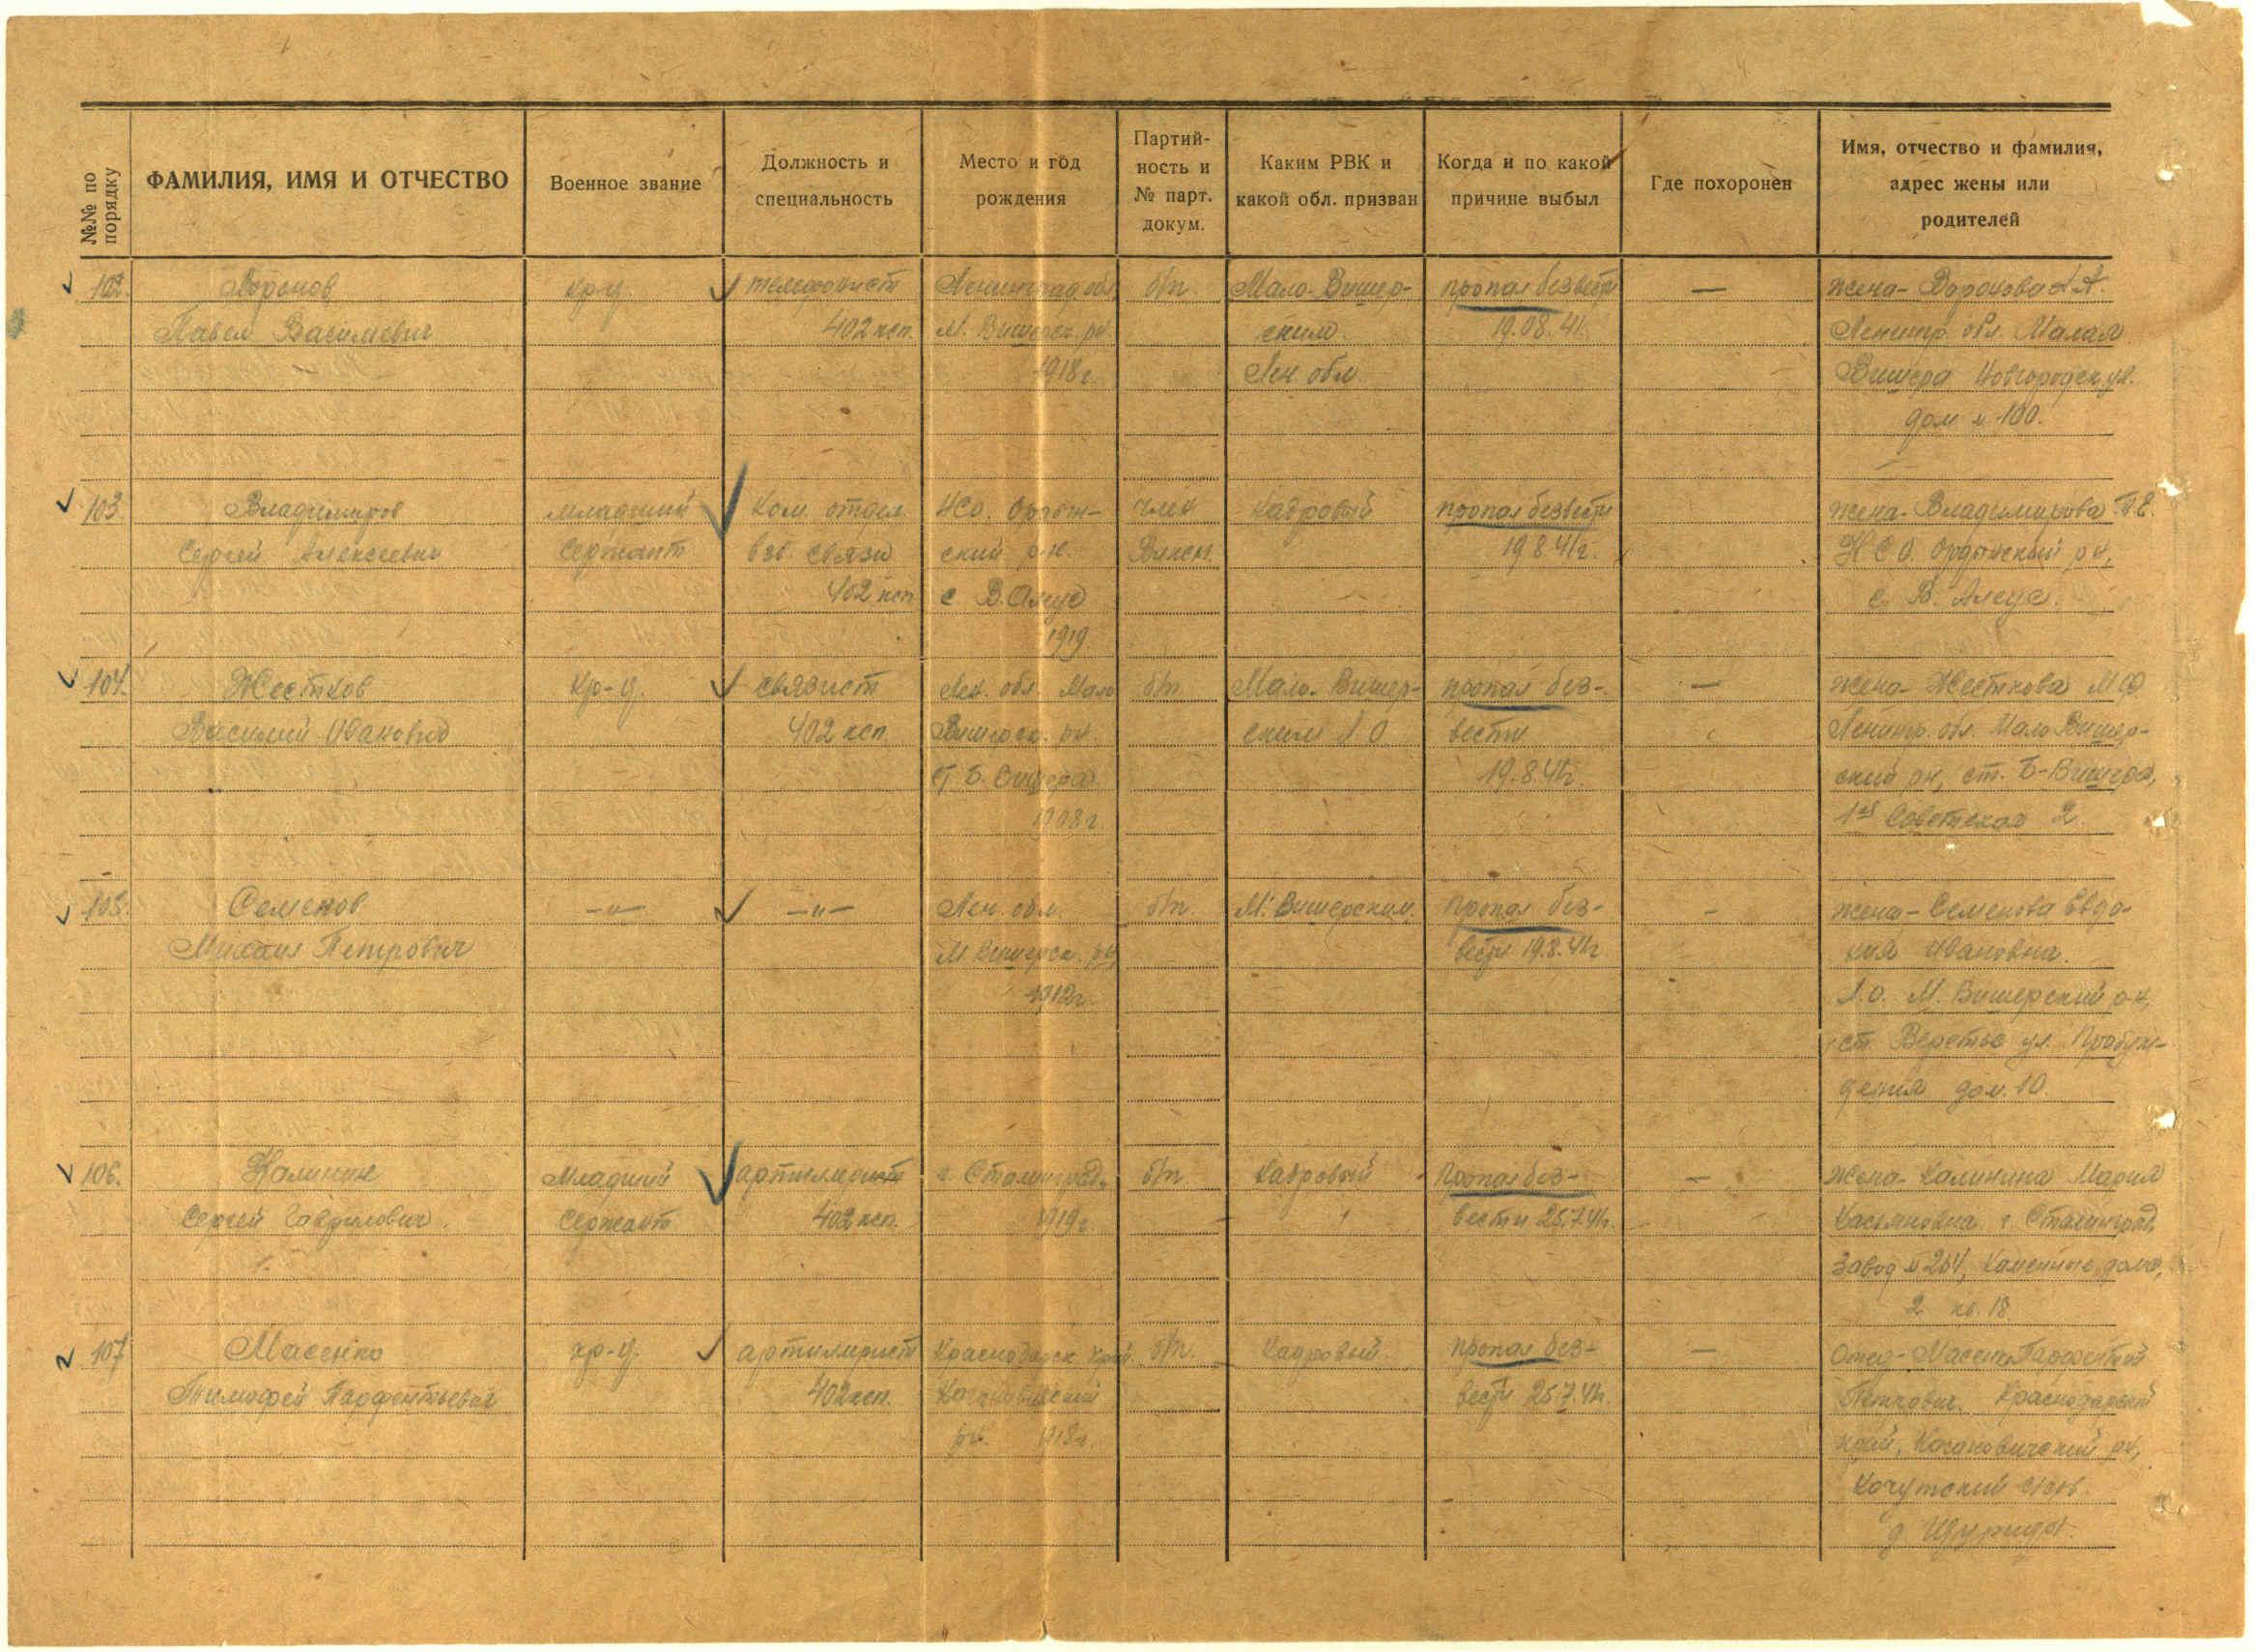 №№ по порядку
ФАМИЛИЯ, ИМЯ И ОТЧЕСТВО
Военное звание
Должность и
специальность
Место и год
рождения
Партий-
ность и
№ парт.
докум.
Каким РВК и
какой обл. призван
Когда и по какой
причине выбыл
Где похоронен
Имя, отчество и фамилия,
адрес жены или
родителей
102. Воронов кр-ц. телефонист Ленинград. обл. б/п Мало-Вишер- пропал безвести — жена- Воронова А.
Павел Васильевич 402 ксп. М. Вишерск. рн. ским 19.08.41. Ленингр. обл. Малая
1918г. Лен. обл. Вишера Новгородск. ул.
дом № 100.
103. Владимиров младший Ком. отдел. НСО. Ордын- член кадровый пропал безвести жена- Владимирова П.Е.
Сергей Алексеевич сержант взв. связи ский р-н. Влксм. 19.8.41г. НСО. Ордынский рн,
402 ксп с. В. Алеус с. В. Алеус.
1919.
104. Жестков кр-ц. связист Лен. обл. Мало б/п Мало-Вишер- пропал без- — жена- Жесткова М.Ф.
Василий Иванович 402 ксп. Вишерск. рн. ским ЛО вести Ленингр. обл. Мало Вишер-
Б. Вишера 19.8.41г. ский рн, ст. Б-Вишера,
1908г. 1ая Советская 2.
105. Семенов —"— —"— Лен. обл. б/п М. Вишерским. Пропал без- — жена- Семенова Евдо-
Михаил Петрович М. Вишерск. рн вести 19.8.41г кия Ивановна.
1912г. Л.О. М. Вишерский р-н,
ст. Веретье ул. Пробуж-
дения дом. 10.
106. Калинин Младший артиллерист г. Сталинград. б/п Кадровый Пропал без- — Жена- Калинина Мария
Сергей Гаврилович. Сержант 402 ксп. 1919г. вести 25.7.41г. Касьяновна г. Сталинград,
Завод № 264, Каменные дома,
2 кв. 18
107 Масенко кр-ц. артиллерист Краснодарск. край б/п. Кадровый. пропал без- — Отец- Масенко Парфентий
Тимофей Парфентьевич 402 ксп. Кагановичский вести 25.7.41г. Петрович. Краснодарский
рн. 1918г. край, Кагановичский рн,